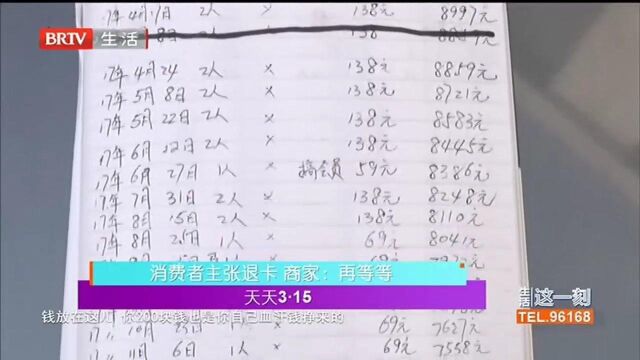 BRTV 生活
17年4月17日 2人 138元 8997元
17年4月24 2人 × 138元 8859元
17年5月8日 2人 × 138元 8721元
17年5月22日 2人 × 138元 8583元
17年6月12日 2人 × 138元 8445元
17年6月27日 1人 搞会员 59元 8386元
17年7月31日 2人 × 138元 8248元
17年8月15日 2人 × 138元 8110元
17年8月 1人 × 69元 8041元
消费者主张退卡 商家：再等等
天天3·15
钱放在这儿 你200块钱也是你自己血汗钱挣来的
生活 这一刻
TEL.96168
25日 1人 69元 7627元
17 11月6日 1人 69元 7558元